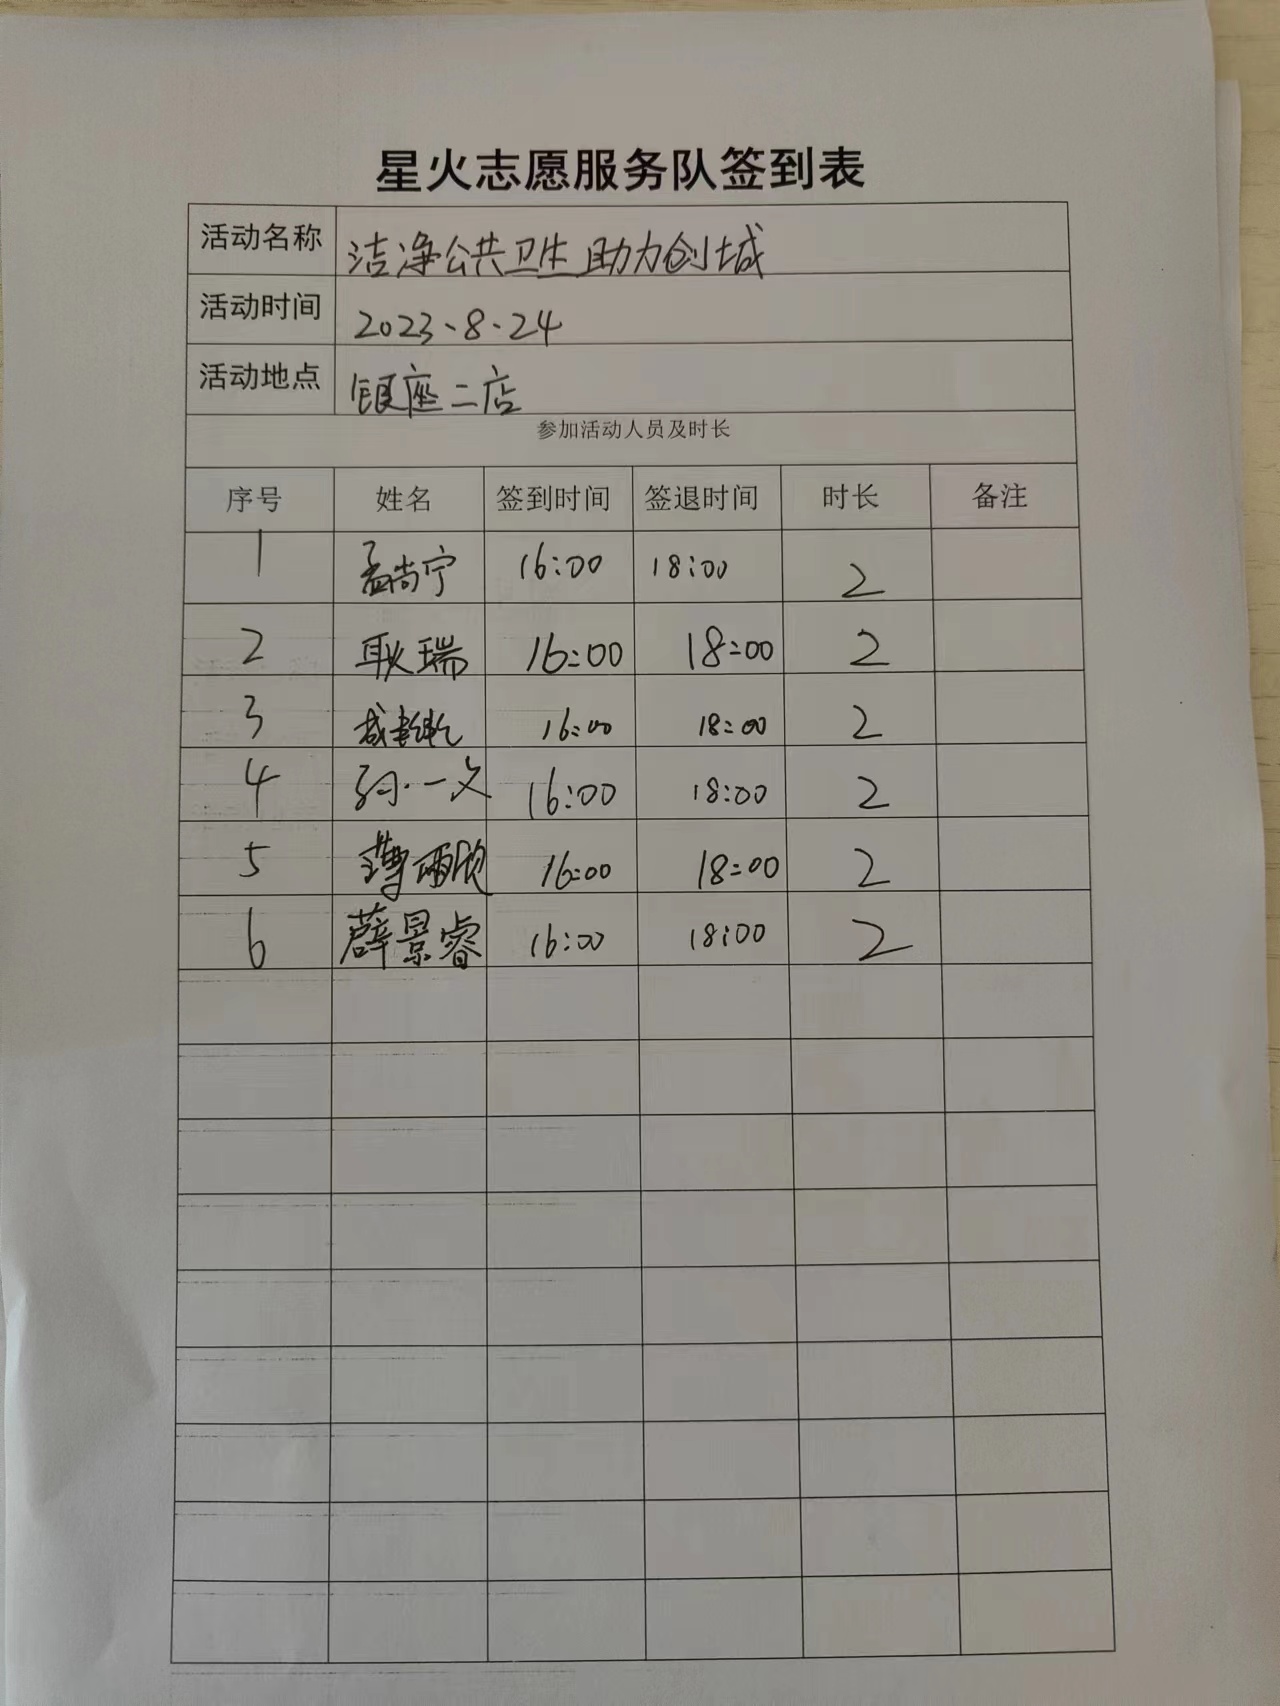 星火志愿服务队签到表
活动名称 洁净公共卫生 助力创城
活动时间 2023、8、24
活动地点 银座二店
参加活动人员及时长
序号 姓名 签到时间 签退时间 时长 备注
1 孟尚宁 16:00 18:00 2
2 耿瑞 16:00 18:00 2
3 16:00 18:00 2
4 孙一文 16:00 18:00 2
5 16:00 18:00 2
6 薛景睿 16:00 18:00 2